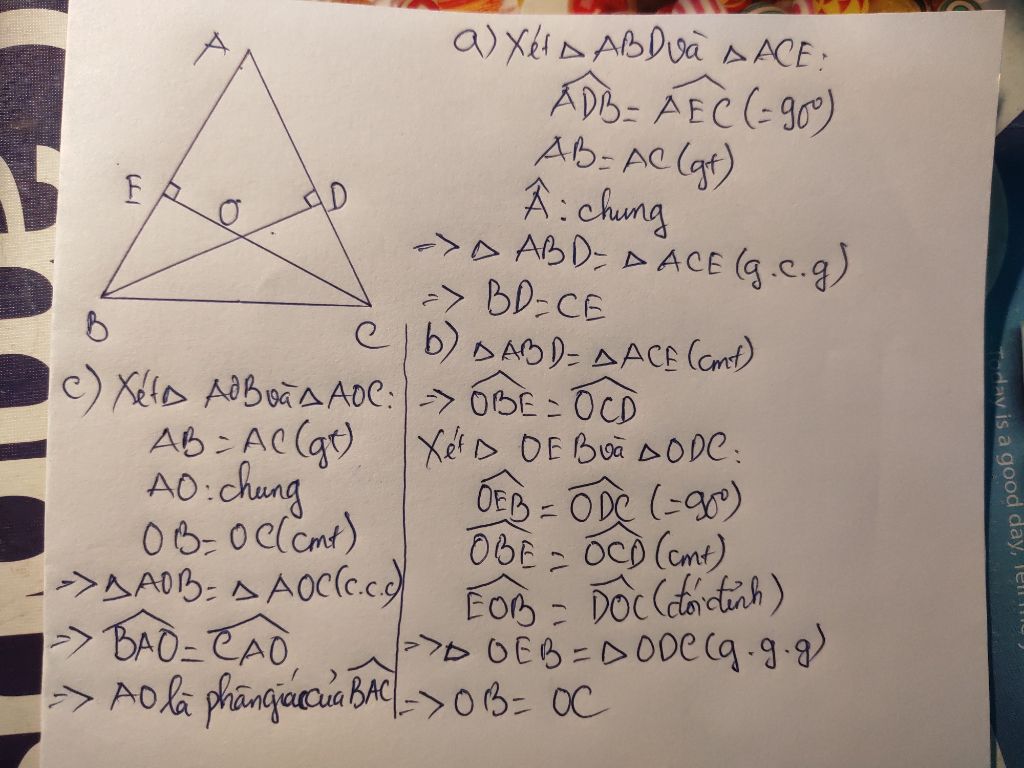 A
E
O
D
B
C
a) Xét △ ABD và △ ACE:
$\widehat{ADB}$ = $\widehat{AEC}$ (=90°)
AB = AC (gt)
$\widehat{A}$ : chung
=> △ ABD = △ ACE (g.c.g)
=> BD = CE
b) △ABD = △ACE (cmt)
=> $\widehat{OBE}$ = $\widehat{OCD}$
Xét △ OEB và △ODC:
$\widehat{OEB}$ = $\widehat{ODC}$ (=90°)
$\widehat{OBE}$ = $\widehat{OCD}$ (cmt)
$\widehat{EOB}$ = $\widehat{DOC}$ (đối đỉnh)
=> △ OEB = △ODC (g.g.g)
=> OB = OC
c) Xét △ AOB và △ AOC:
AB = AC (gt)
AO : chung
OB = OC (cmt)
=> △AOB = △ AOC (c.c.c)
=> $\widehat{BAO}$ = $\widehat{CAO}$
=> AO là phân giác của $\widehat{BAC}$
Today is a good day.